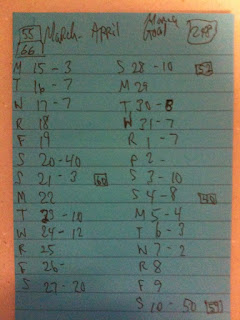 55 March - April Goal 248
66
M 15 - 3 S 28 - 10
T 16 - 7 M 29
W 17 - 7 T 30 - 8
R 18 W 31 - 7
F 19 R 1 - 7
S 20 - 40 F 2 -
S 21 - 3 S 3 - 10
M 22 S 4 - 8
T 23 - 10 M 5 - 4
W 24 - 12 T 6 - 3
R 25 W 7 - 2
F 26 - R 8
S 27 - 20 F 9
S 10 - 50 59